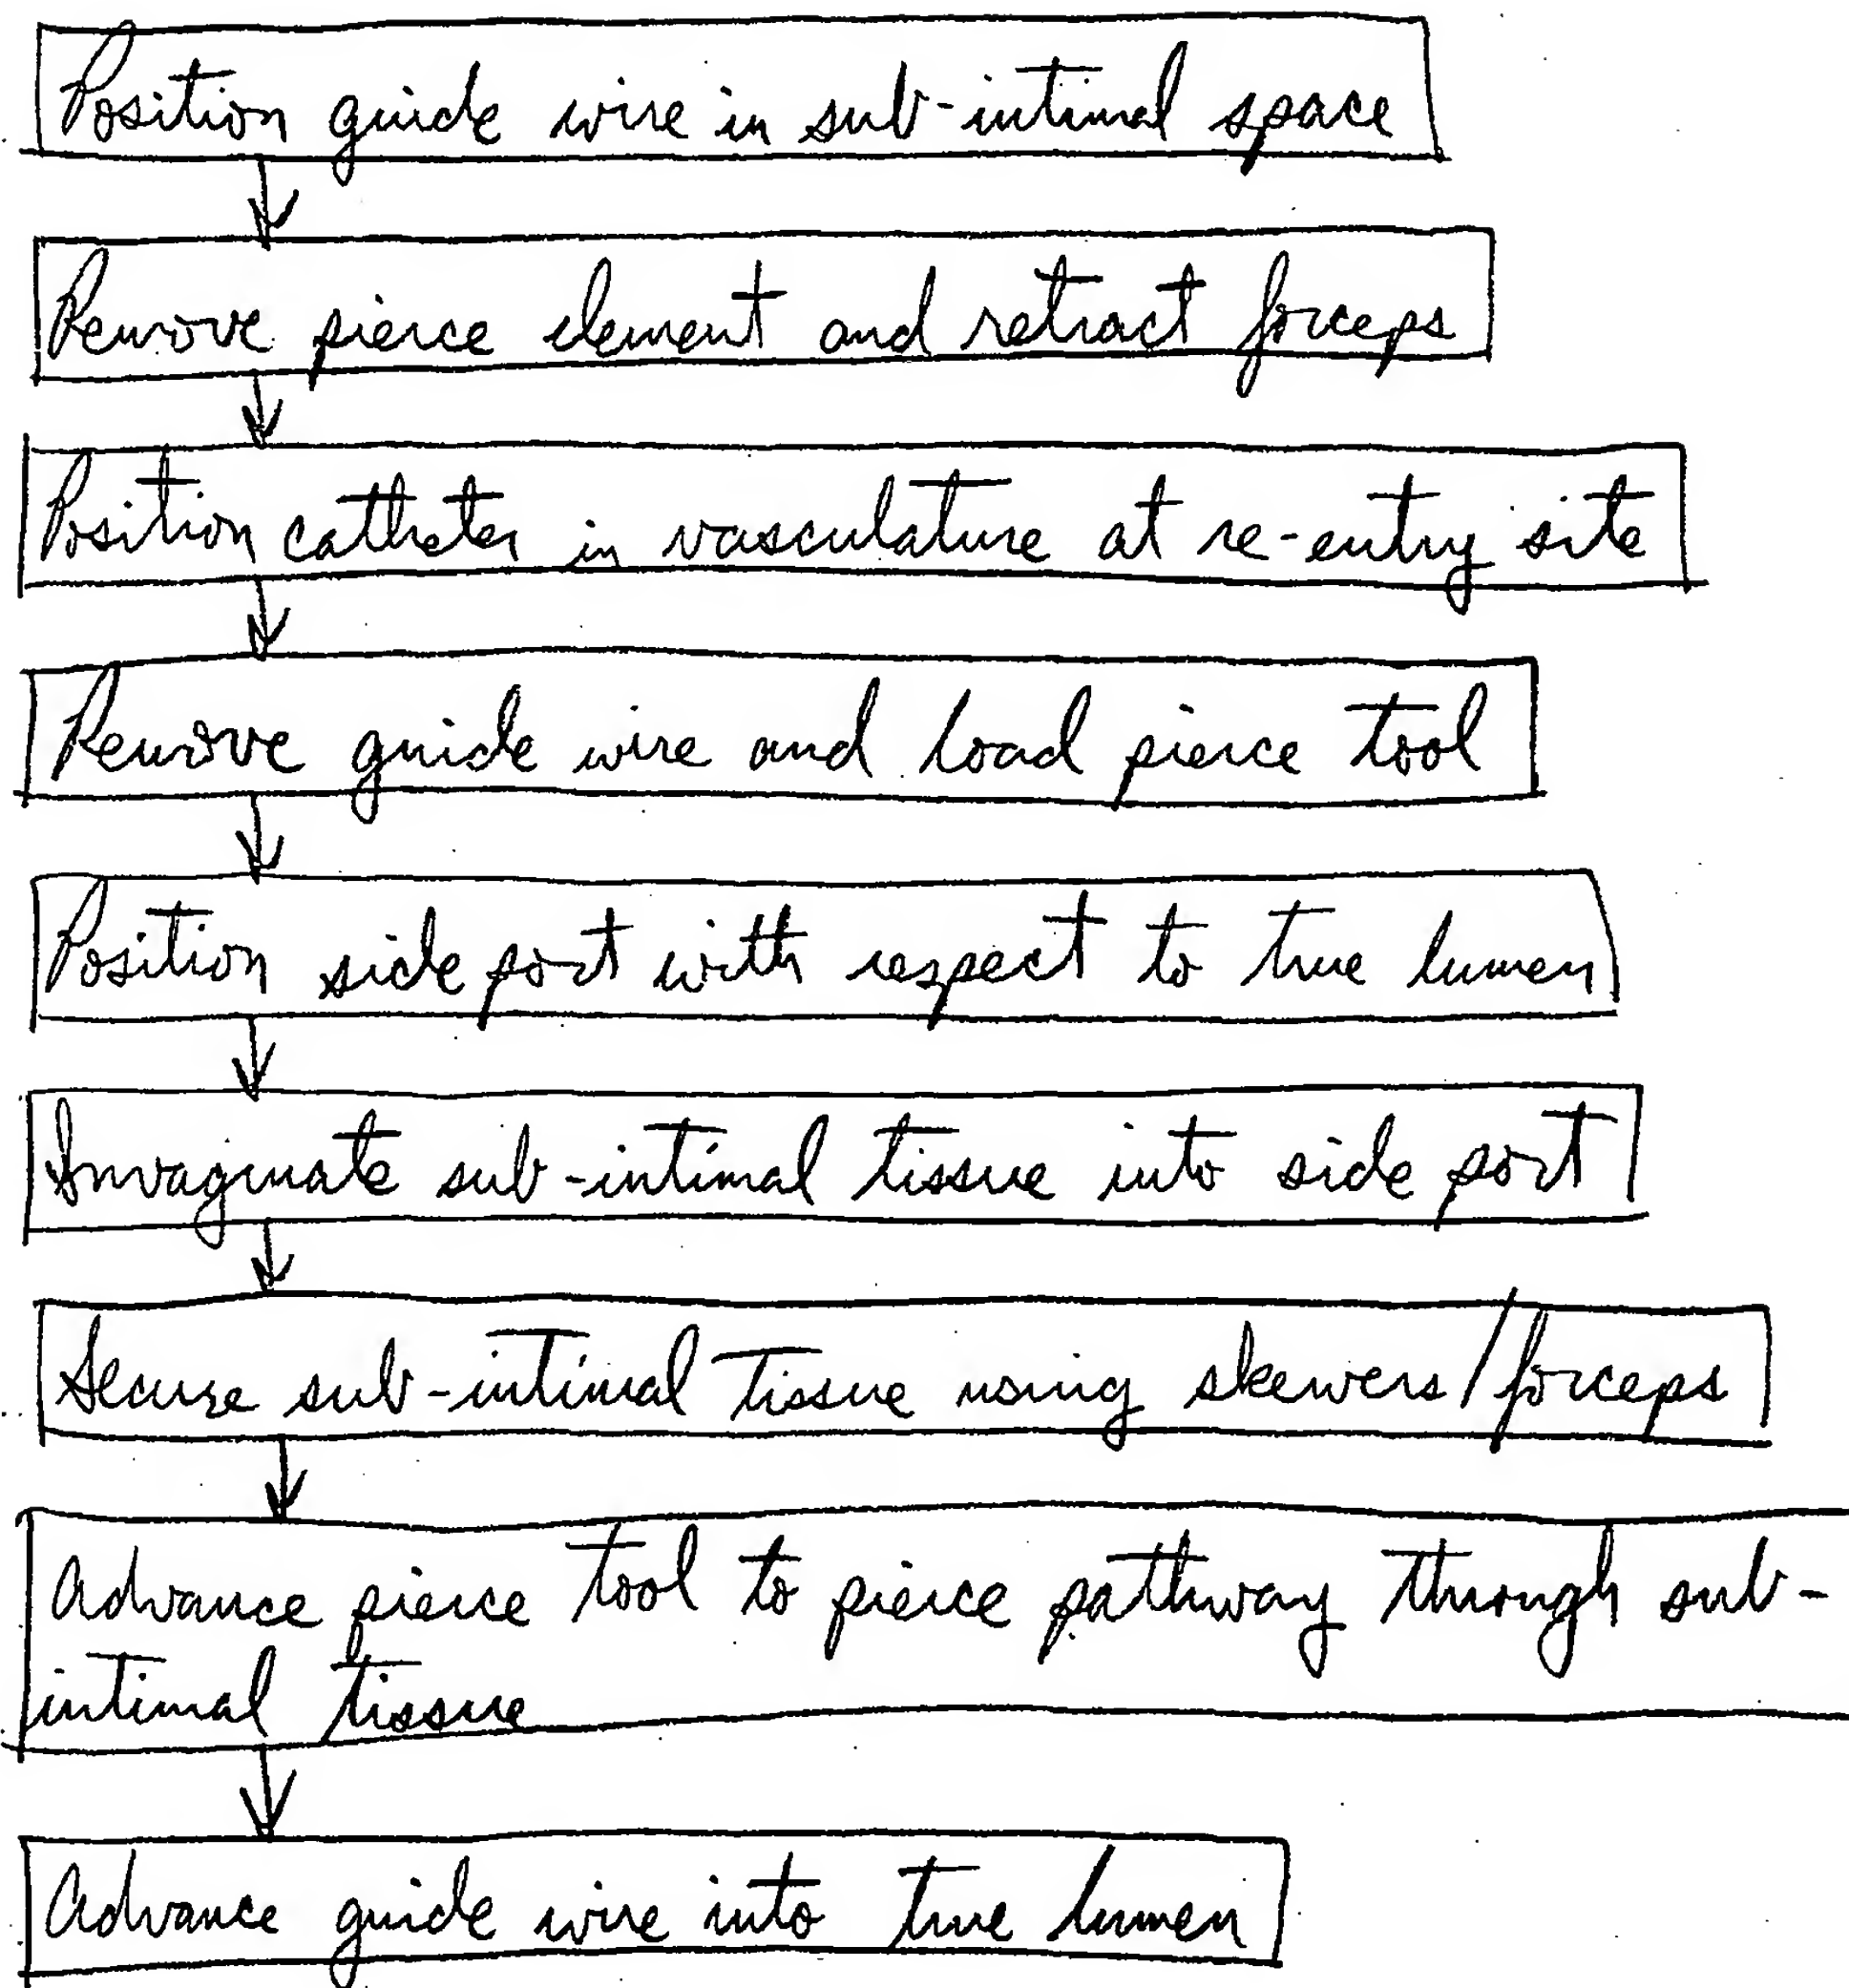 Position guide wire in sub-intimal space
Remove pierce element and retract forceps
Position catheter in vasculature at re-entry site
Remove guide wire and load pierce tool
Position side port with respect to true lumen
Invaginate sub-intimal tissue into side port
Secure sub-intimal tissue using skewers/forceps
Advance pierce tool to pierce pathway through sub-
intimal tissue
Advance guide wire into true lumen